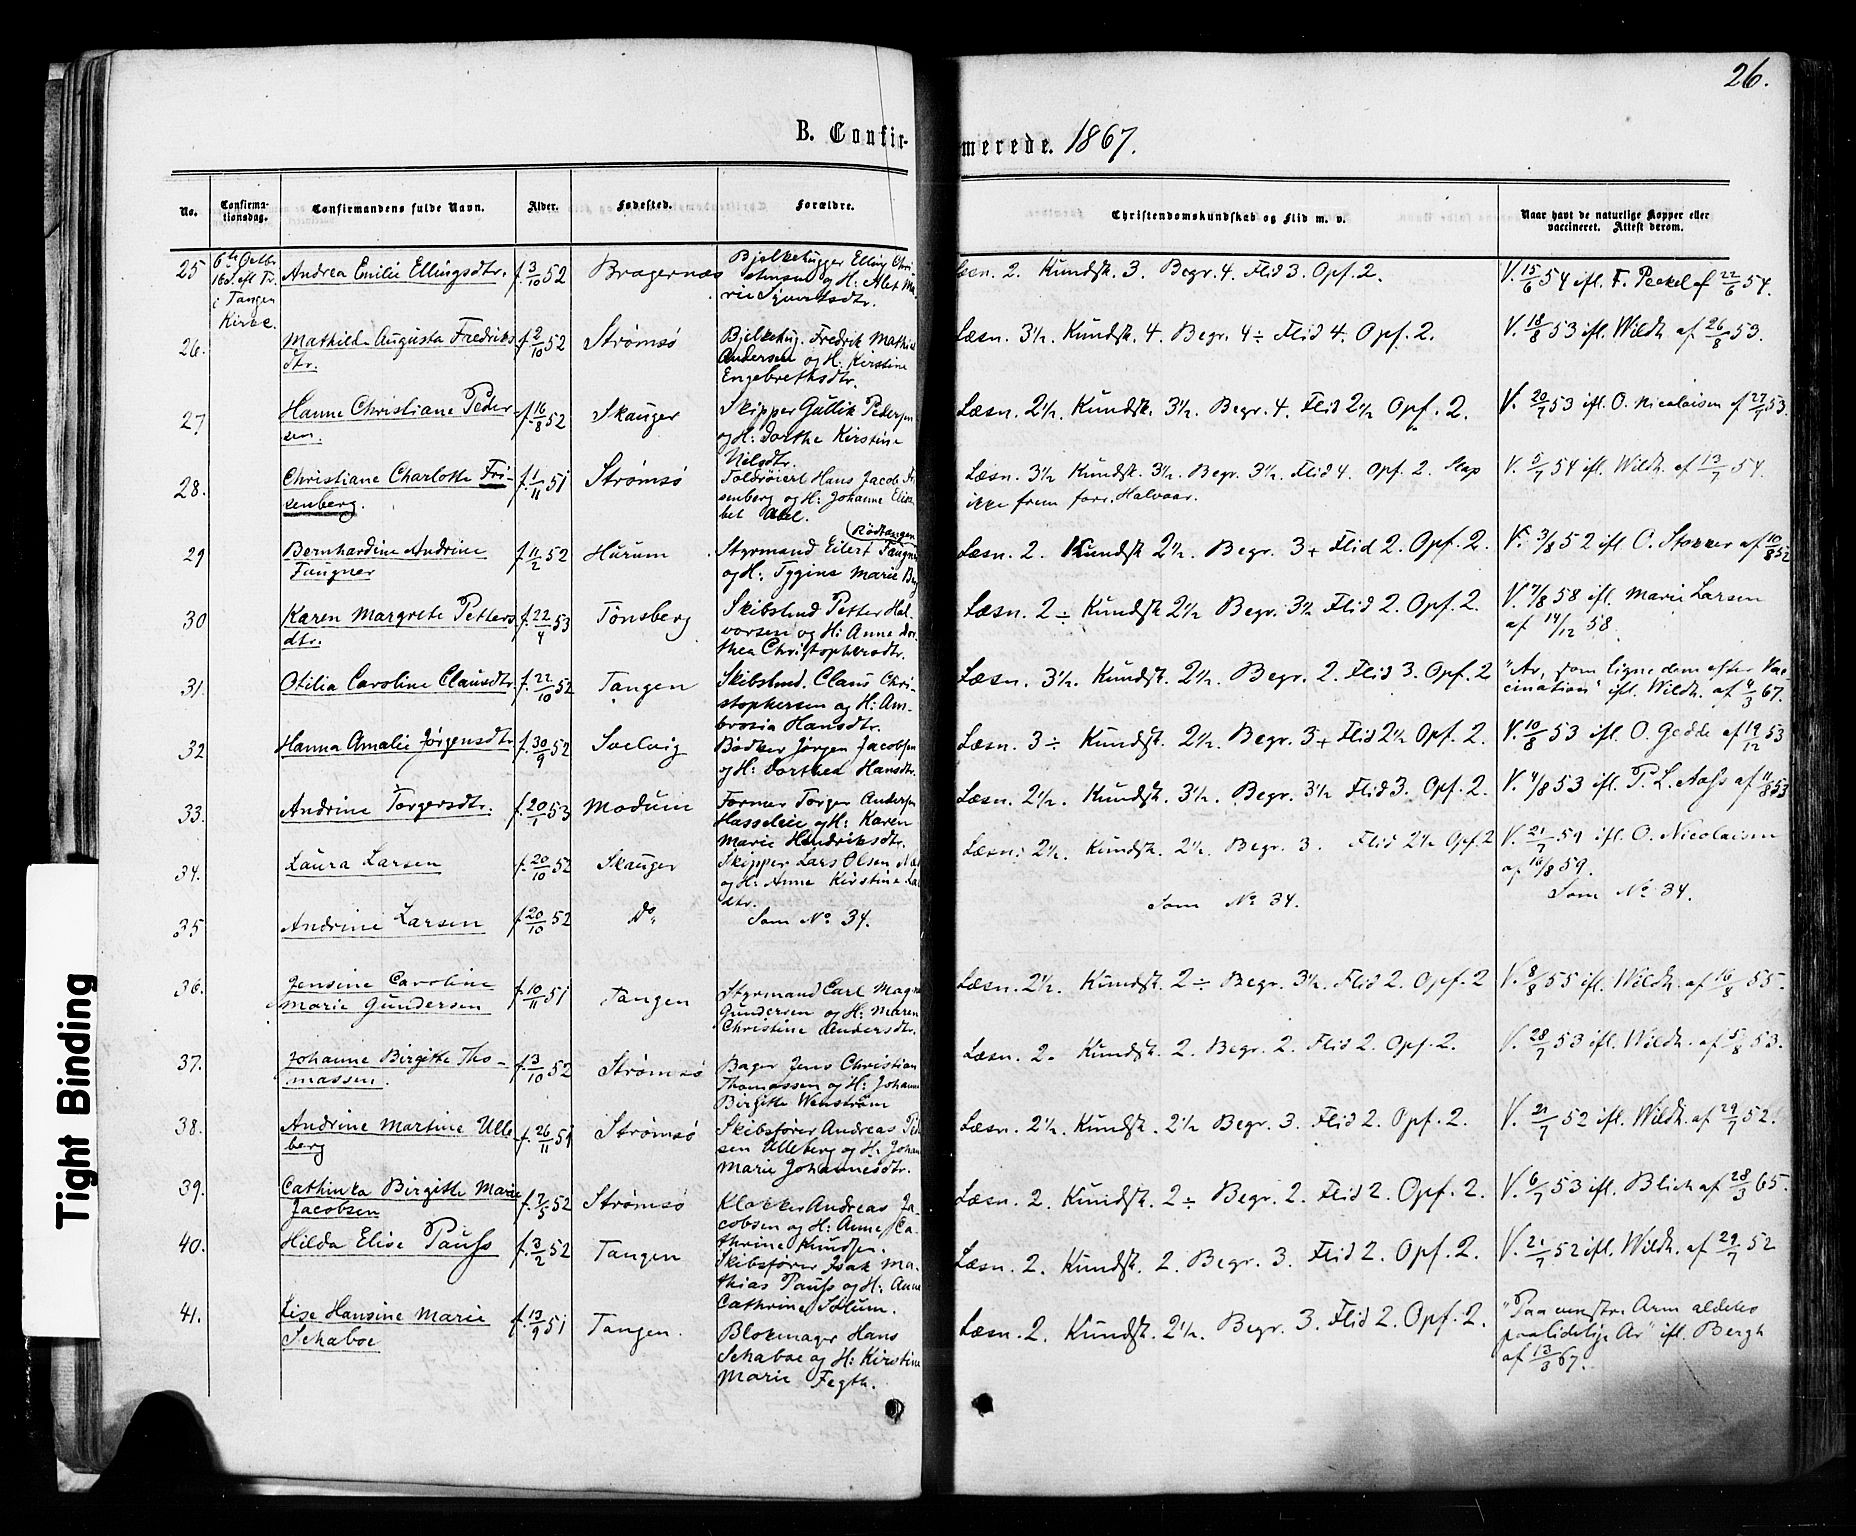 26.
B. Confir-
merede. 1867.
No.
Confirma-
tionsdag.
Confirmandens fulde Navn.
Alder.
Fødested.
Forældre.
Christendomskundskab og Flid m. v.
Naar havt de naturlige Kopper eller
vaccineret. Attest derom.
25
6te Octbr
16 S. eft Tr.
i Tangen
Kirke.
Andrea Emilie Ellingsdtr. f. 3/10 52 Bragernæs
Bjelkehugger Elling Chri-
stensen og H: Alet Ma-
rie Sjuvertsdtr.
Læsn. 2. Kundsk. 3. Begr. 4. Flid 3. Opf. 2.
V. 15/6 54 ifl. F. Peckel af 22/6 54.
26.
Mathilde Augusta Fredriks f. 2/10 52 Strømsø
dtr.
Bjelkehug. Fredrik Mathias
Andersen og H. Kirstine
Engebrethsdtr.
Læsn. 3½. Kundsk. 4. Begr. 4÷ Flid 4. Opf. 2.
V. 18/8 53 ifl. Wildh. af 26/8 53.
27
Hanne Christiane Peder- f. 16/8 52 Skauger
sen.
Skipper Gullik Pedersen
og H: Dorthe Kirstine
Nilsdtr.
Læsn. 2½. Kundsk. 3½. Begr. 4. Flid 2½ Opf. 2.
V. 20/7 53 ifl. O. Nicolaisen af 27/7 53.
28.
Christiane Charlotte Fri- f. 1/11 51 Strømsø
senberg.
Toldrøiert Hans Jacob Fri
senberg og H: Johanne Elisa
bet Abel.
Læsn. 3½ Kundsk. 3½. Begr. 3½. Flid 4. Opf. 2. Slap
ikke frem forr. Halvaar.
V. 5/7 54 ifl. Wildh. af 13/7 54.
29
Bernhardine Andrine f. 11/2 52 Hurum
Faugner
Rødtangen
Styrmand Eilert Faugner
og H: Tygine Marie Berg
Læsn. 2. Kundsk 2½. Begr. 3+ Flid 2. Opf. 2.
V. 3/8 52 ifl. C. Storrer af 10/8 52
30
Karen Margrete Petters f. 22/4 53 Tønsberg
dtr.
Skibstmd Petter Hal
vorsen og H: Anne Dor
thea Christophersdtr.
Læsn. 2÷ Kundsk 2½ Begr. 3½ Flid 2. Opf. 2.
V. 7/8 58 ifl. Marie Larsen
af 14/12 58.
31.
Otilia Caroline Clausdtr f. 22/10 52 Tangen
Skibstmd. Claus Chri-
stophersen og H: Am-
brosia Hansdtr.
Læsn. 3½. Kundsk. 2½. Begr. 2. Flid 3. Opf. 2
"Ar, som ligne dem efter Vac
cination" ifl. Wildh. af 4/3 67.
32
Hanna Amalie Jørgensdtr f. 30/9 52 Svelvig
Bødker Jørgen Jacobsen
og H: Dorthea Hansdtr.
Læsn. 3÷ Kundsk. 2½. Begr. 3+ Flid 2½ Opf. 2.
V. 10/8 53 ifl. O. Gedde af 19/12 53
33.
Andrine Torgersdtr. f. 20/1 53 Modum
Former Torger Andersen
Hasseleie og H: Karen
Marie Hendriksdtr.
Læsn. 2½. Kundsk. 3½. Begr. 3½ Flid 3. Opf. 2.
V. 4/8 53 ifl. P. L. Aass af 11/8 53
34.
Laura Larsen f. 20/10 52 Skauger
Skipper Lars Olsen
og H: Anne Kirstine
dtr.
Læsn: 2½. Kundsk. 2½. Begr. 3. Flid 2½ Opf. 2
V. 21/7 59 ifl. O. Nicolaisen
af 16/8 59.
35
Andrine Larsen f. 20/10 52 Do
Som No 34.
Som No 34.
Som No 34.
36.
Jensine Caroline f. 10/11 51 Tangen
Marie Gundersen
Styrmand Carl Magn
Gundersen og H: Maren
Christine Andersdtr.
Læsn. 2½. Kundsk. 2÷ Begr. 3½. Flid 2. Opf. 2
V. 8/8 55 ifl. Wildh. af 16/8 55.
37.
Johanne Birgitte Tho- f. 3/10 52 Strømsø
massen.
Bager Jens Christian
Thomassen og H: Johanne
Birgitte Wenstrøm
Læsn. 2. Kundsk. 2. Begr. 2. Flid 2. Opf. 2.
V. 28/7 53 ifl. Wildh. af 5/8 53.
38.
Andrine Martine Ulle f. 26/11 51 Strømsø
berg
Skibsfører Andreas Peder
sen Ulleberg og H: Johan
Marie Johannesdtr.
Læsn. 2½. Kundsk. 2½ Begr. 3. Flid 2. Opf. 2.
V. 21/7 52 ifl. Wildh. af 29/7 52.
39.
Cathinka Birgitte Marie f. 7/5 52 Strømsø
Jacobsen
Klokker Andreas Ja-
cobsen og H: Anne Ca-
thrine Knudsen.
Læsn. 2. Kundsk. 2÷ Begr. 2. Flid 2. Opf. 2.
V. 6/7 53 ifl. Blich af 28/3 65.
40.
Hilda Elise Pauss f. 3/2 52 Tangen
Skibsfører Isak Ma-
thias Pauss og H: Anne
Cathrine Stlum.
Læsn. 2. Kundsk. 2. Begr. 3. Flid 2. Opf. 2.
V. 21/7 52 ifl. Wildh. af 29/7 52
41.
Lise Hansine Marie f. 13/9 51 Tangen.
Schaboe
Blokmager Hans
Schaboe og H: Kirstine
Marie Fegth.
Læsn. 2. Kundsk. 2½. Begr. 3. Flid 2. Opf. 2.
"Paa venstr. Arm aldeles
paalidelige Ar" ifl. Bergh
af 13/3 67.
Tight Binding